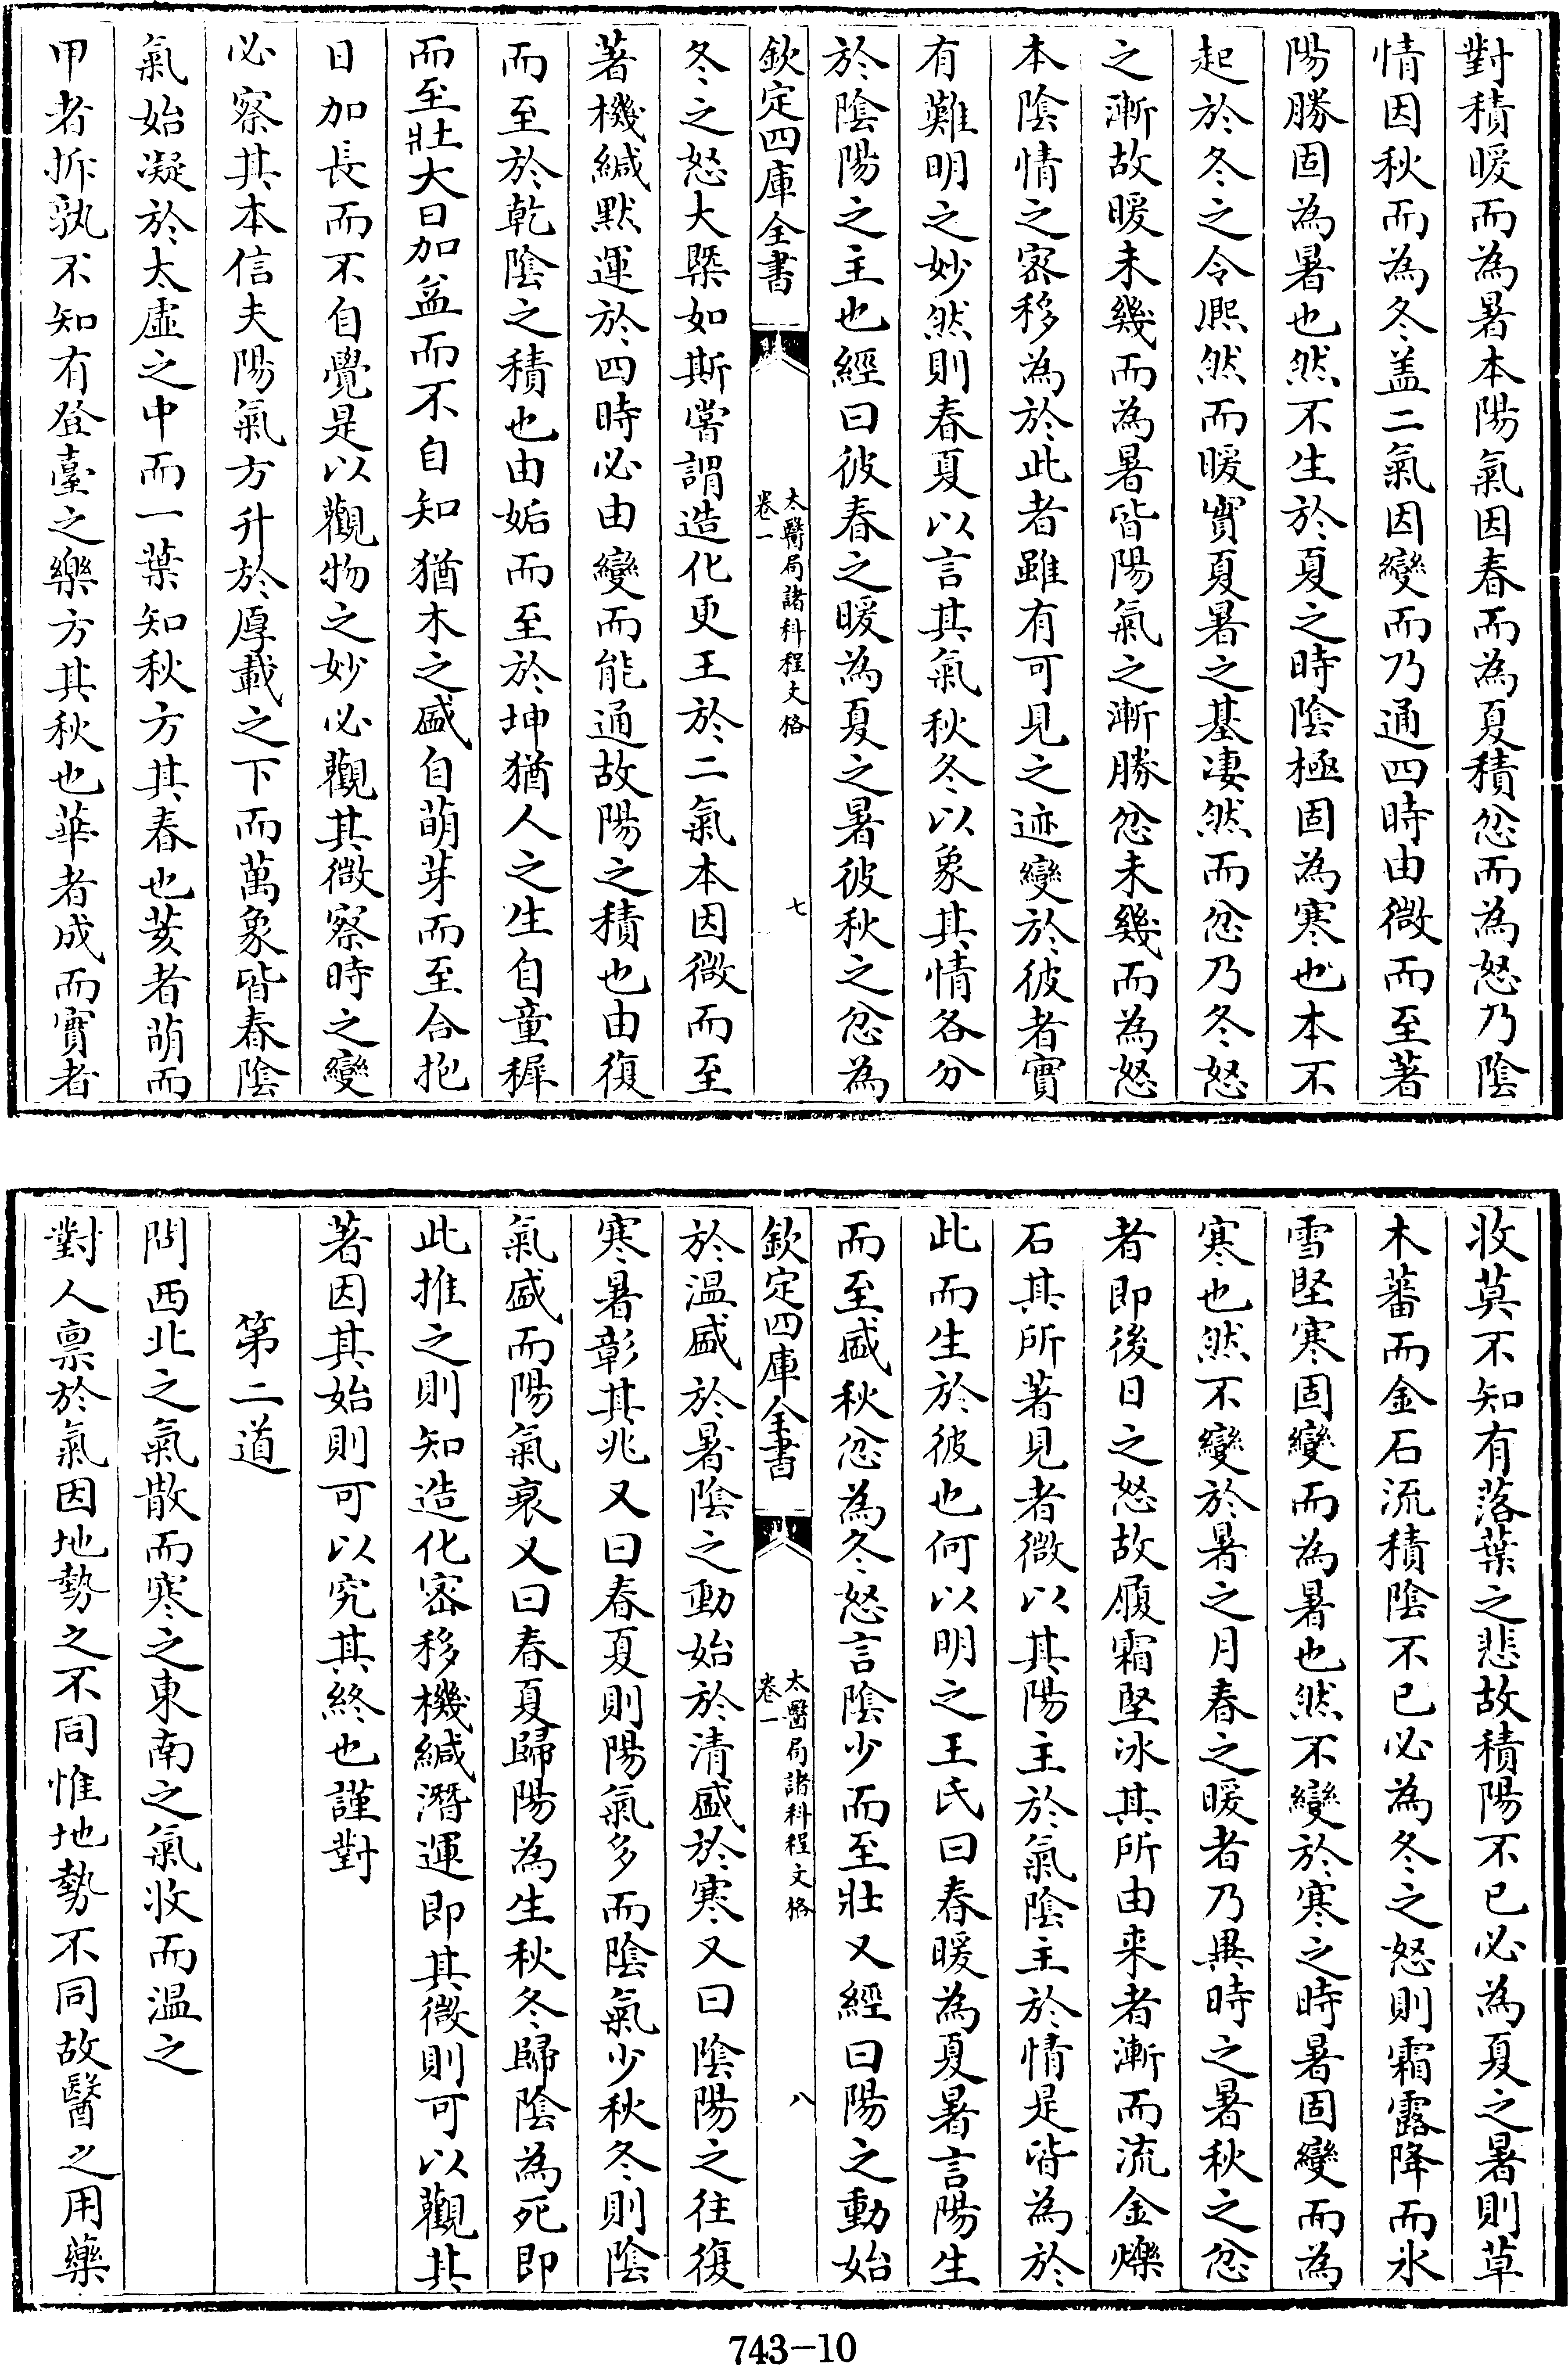 對積暖而為暑本陽氣因春而為夏積忿而為怒乃陰
情因秋而為冬盖二氣因變而乃通四時由微而至著
陽勝固為暑也然不生於夏之時陰極固為寒也本不
起於冬之令熈然而暖實夏暑之基凄然而忿乃冬怒
之漸故暖未幾而為暑皆陽氣之漸勝忿未幾而為怒
本陰情之宻移為於此者雖有可見之迹變於彼者實
有難明之妙然則春夏以言其氣秋冬以象其情各分
於陰陽之主也經曰彼春之暖為夏之暑彼秋之忿為
欽定四庫全書 太醫局諸科程文格 卷一 七
冬之怒大槩如斯嘗謂造化更王於二氣本因微而至
著機緘默運於四時必由變而能通故陽之積也由復
而至於乾陰之積也由姤而至於坤猶人之生自童穉
而至壯大日加益而不自知猶木之盛自萌芽而至合抱
日加長而不自覺是以觀物之妙必觀其微察時之變
必察其本信夫陽氣方升於厚載之下而萬象皆春陰
氣始凝於太虛之中而一葉知秋方其春也荄者萌而
甲者拆孰不知有登臺之樂方其秋也華者成而實者
收莫不知有落葉之悲故積陽不已必為夏之暑則草
木蕃而金石流積陰不已必為冬之怒則霜露降而氷
雪堅寒固變而為暑也然不變於寒之時暑固變而為
寒也然不變於暑之月春之暖者乃異時之暑秋之忿
者即後日之怒故履霜堅冰其所由来者漸而流金爍
石其所著見者微以其陽主於氣陰主於情是皆為於
此而生於彼也何以明之王氏曰春暖為夏暑言陽生
而至盛秋忿為冬怒言陰少而至壯又經曰陽之動始
欽定四庫全書 太醫局諸科程文格 卷一 八
於温盛於暑陰之動始於清盛於寒又曰陰陽之往復
寒暑彰其兆又曰春夏則陽氣多而陰氣少秋冬則陰
氣盛而陽氣衰又曰春夏歸陽為生秋冬歸陰為死即
此推之則知造化宻移機緘潛運即其微則可以觀其
著因其始則可以究其終也謹對
第二道
問西北之氣散而寒之東南之氣收而温之
對人禀於氣因地勢之不同惟地勢不同故醫之用藥
743-10